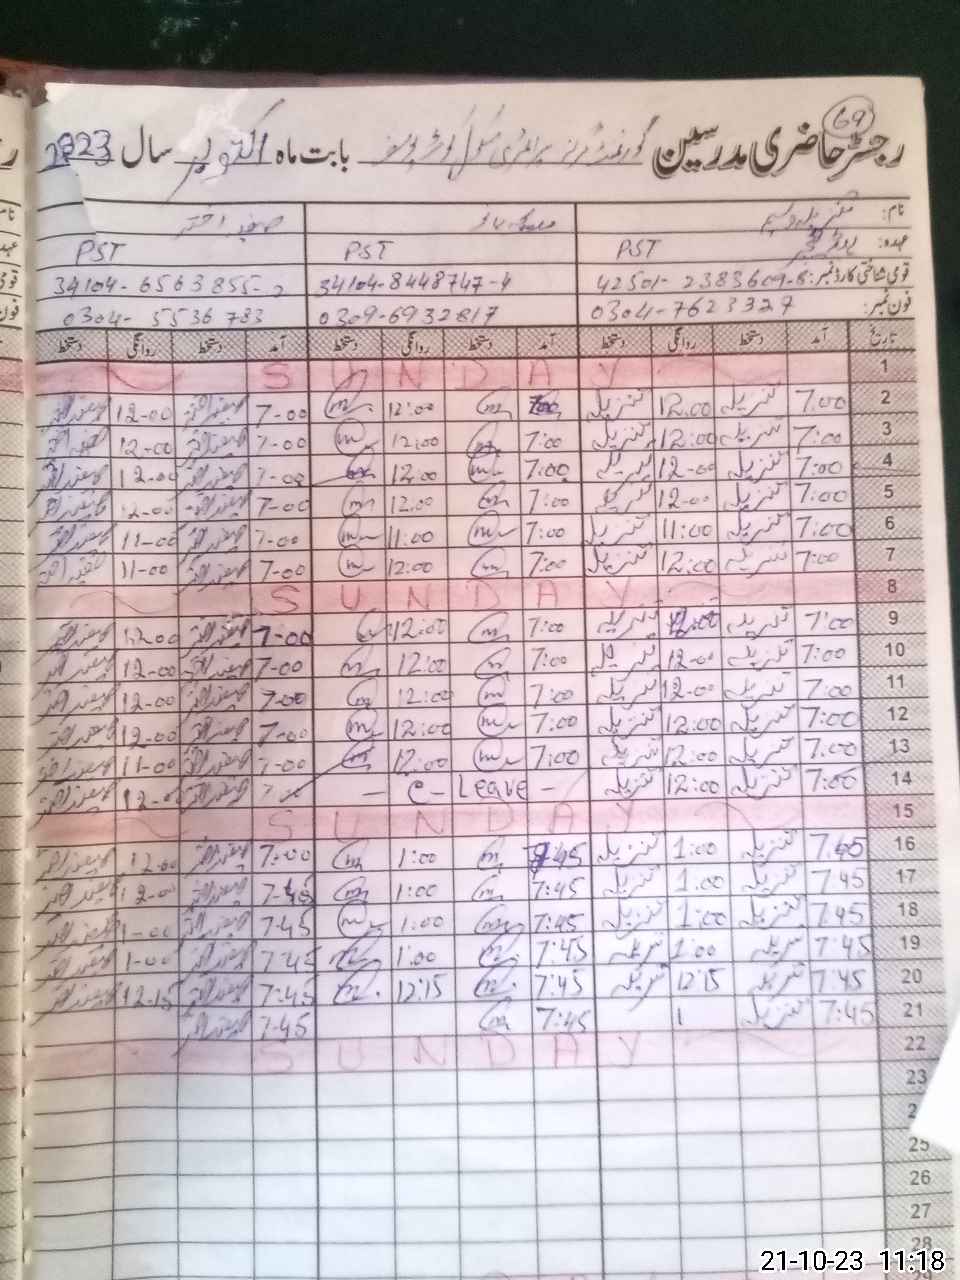 69
رجسٹر حاضری مدرسین گورنمنٹ گرلز پرائمری سکول بابت ماہ اکتوبر سال 2023
نام: صفیہ اختر
عہدہ: PST PST PST
قومی شناختی کارڈ نمبر: 42501-2383609-8 34104-8448747-4 34104-6563855-2
فون نمبر: 0304-7623327 0309-6932817 0304-5536783
تاریخ آمد دستخط روانگی دستخط آمد دستخط روانگی دستخط آمد دستخط روانگی دستخط
1 SUNDAY
2 7:00 تنزیلہ 12:00 تنزیلہ 7:00 m 12:00 m 7-00 صفیہ اختر 12-00 صفیہ اختر
3 7:00 تنزیلہ 12:00 تنزیلہ 7:00 m 12:00 m 7-00 صفیہ اختر 12-00 صفیہ اختر
4 7:00 تنزیلہ 12-00 تنزیلہ 7:00 m 12:00 7-00 صفیہ اختر 12-00 صفیہ اختر
5 7:00 تنزیلہ 12-00 تنزیلہ 7:00 m 12:00 m 7-00 صفیہ اختر 12-00 صفیہ اختر
6 7:00 تنزیلہ 11:00 تنزیلہ 7:00 m 11:00 m 7-00 صفیہ اختر 11-00 صفیہ اختر
7 7:00 تنزیلہ 12:00 تنزیلہ 7:00 m 12:00 m 7-00 صفیہ اختر 11-00 صفیہ اختر
8 SUNDAY
9 7:00 تنزیلہ 12:00 تنزیلہ 7:00 m 12:00 7-00 صفیہ اختر 12-00 صفیہ اختر
10 7:00 تنزیلہ 12-00 تنزیلہ 7:00 m 12:00 m 7-00 صفیہ اختر 12-00 صفیہ اختر
11 7:00 تنزیلہ 12-00 تنزیلہ 7:00 m 12:00 m 7-00 صفیہ اختر 12-00 صفیہ اختر
12 7:00 تنزیلہ 12:00 تنزیلہ 7:00 m 12:00 m 7-00 صفیہ اختر 12-00 صفیہ اختر
13 7:00 تنزیلہ 12:00 تنزیلہ 7:00 m 12:00 m 7-00 صفیہ اختر 11-00 صفیہ اختر
14 7:00 تنزیلہ 12:00 تنزیلہ - C- Leave - صفیہ اختر 12-00 صفیہ اختر
15 SUNDAY
16 7:45 تنزیلہ 1:00 تنزیلہ 7:45 m 1:00 m 7-00 صفیہ اختر 12-00 صفیہ اختر
17 7:45 تنزیلہ 1:00 تنزیلہ 7:45 m 1:00 m 7-45 صفیہ اختر 12-00 صفیہ اختر
18 7:45 تنزیلہ 1:00 تنزیلہ 7:45 m 1:00 m 7:45 صفیہ اختر 1-00 صفیہ اختر
19 7:45 تنزیلہ 1:00 تنزیلہ 7:45 m 1:00 m 7:45 صفیہ اختر 1-00 صفیہ اختر
20 7:45 تنزیلہ 12:15 تنزیلہ 7:45 m 12:15 m 7:45 صفیہ اختر 12-15 صفیہ اختر
21 7:45 تنزیلہ 1 7:45 m 7-45 صفیہ اختر
22 SUNDAY
23
25
26
27
28
21-10-23 11:18